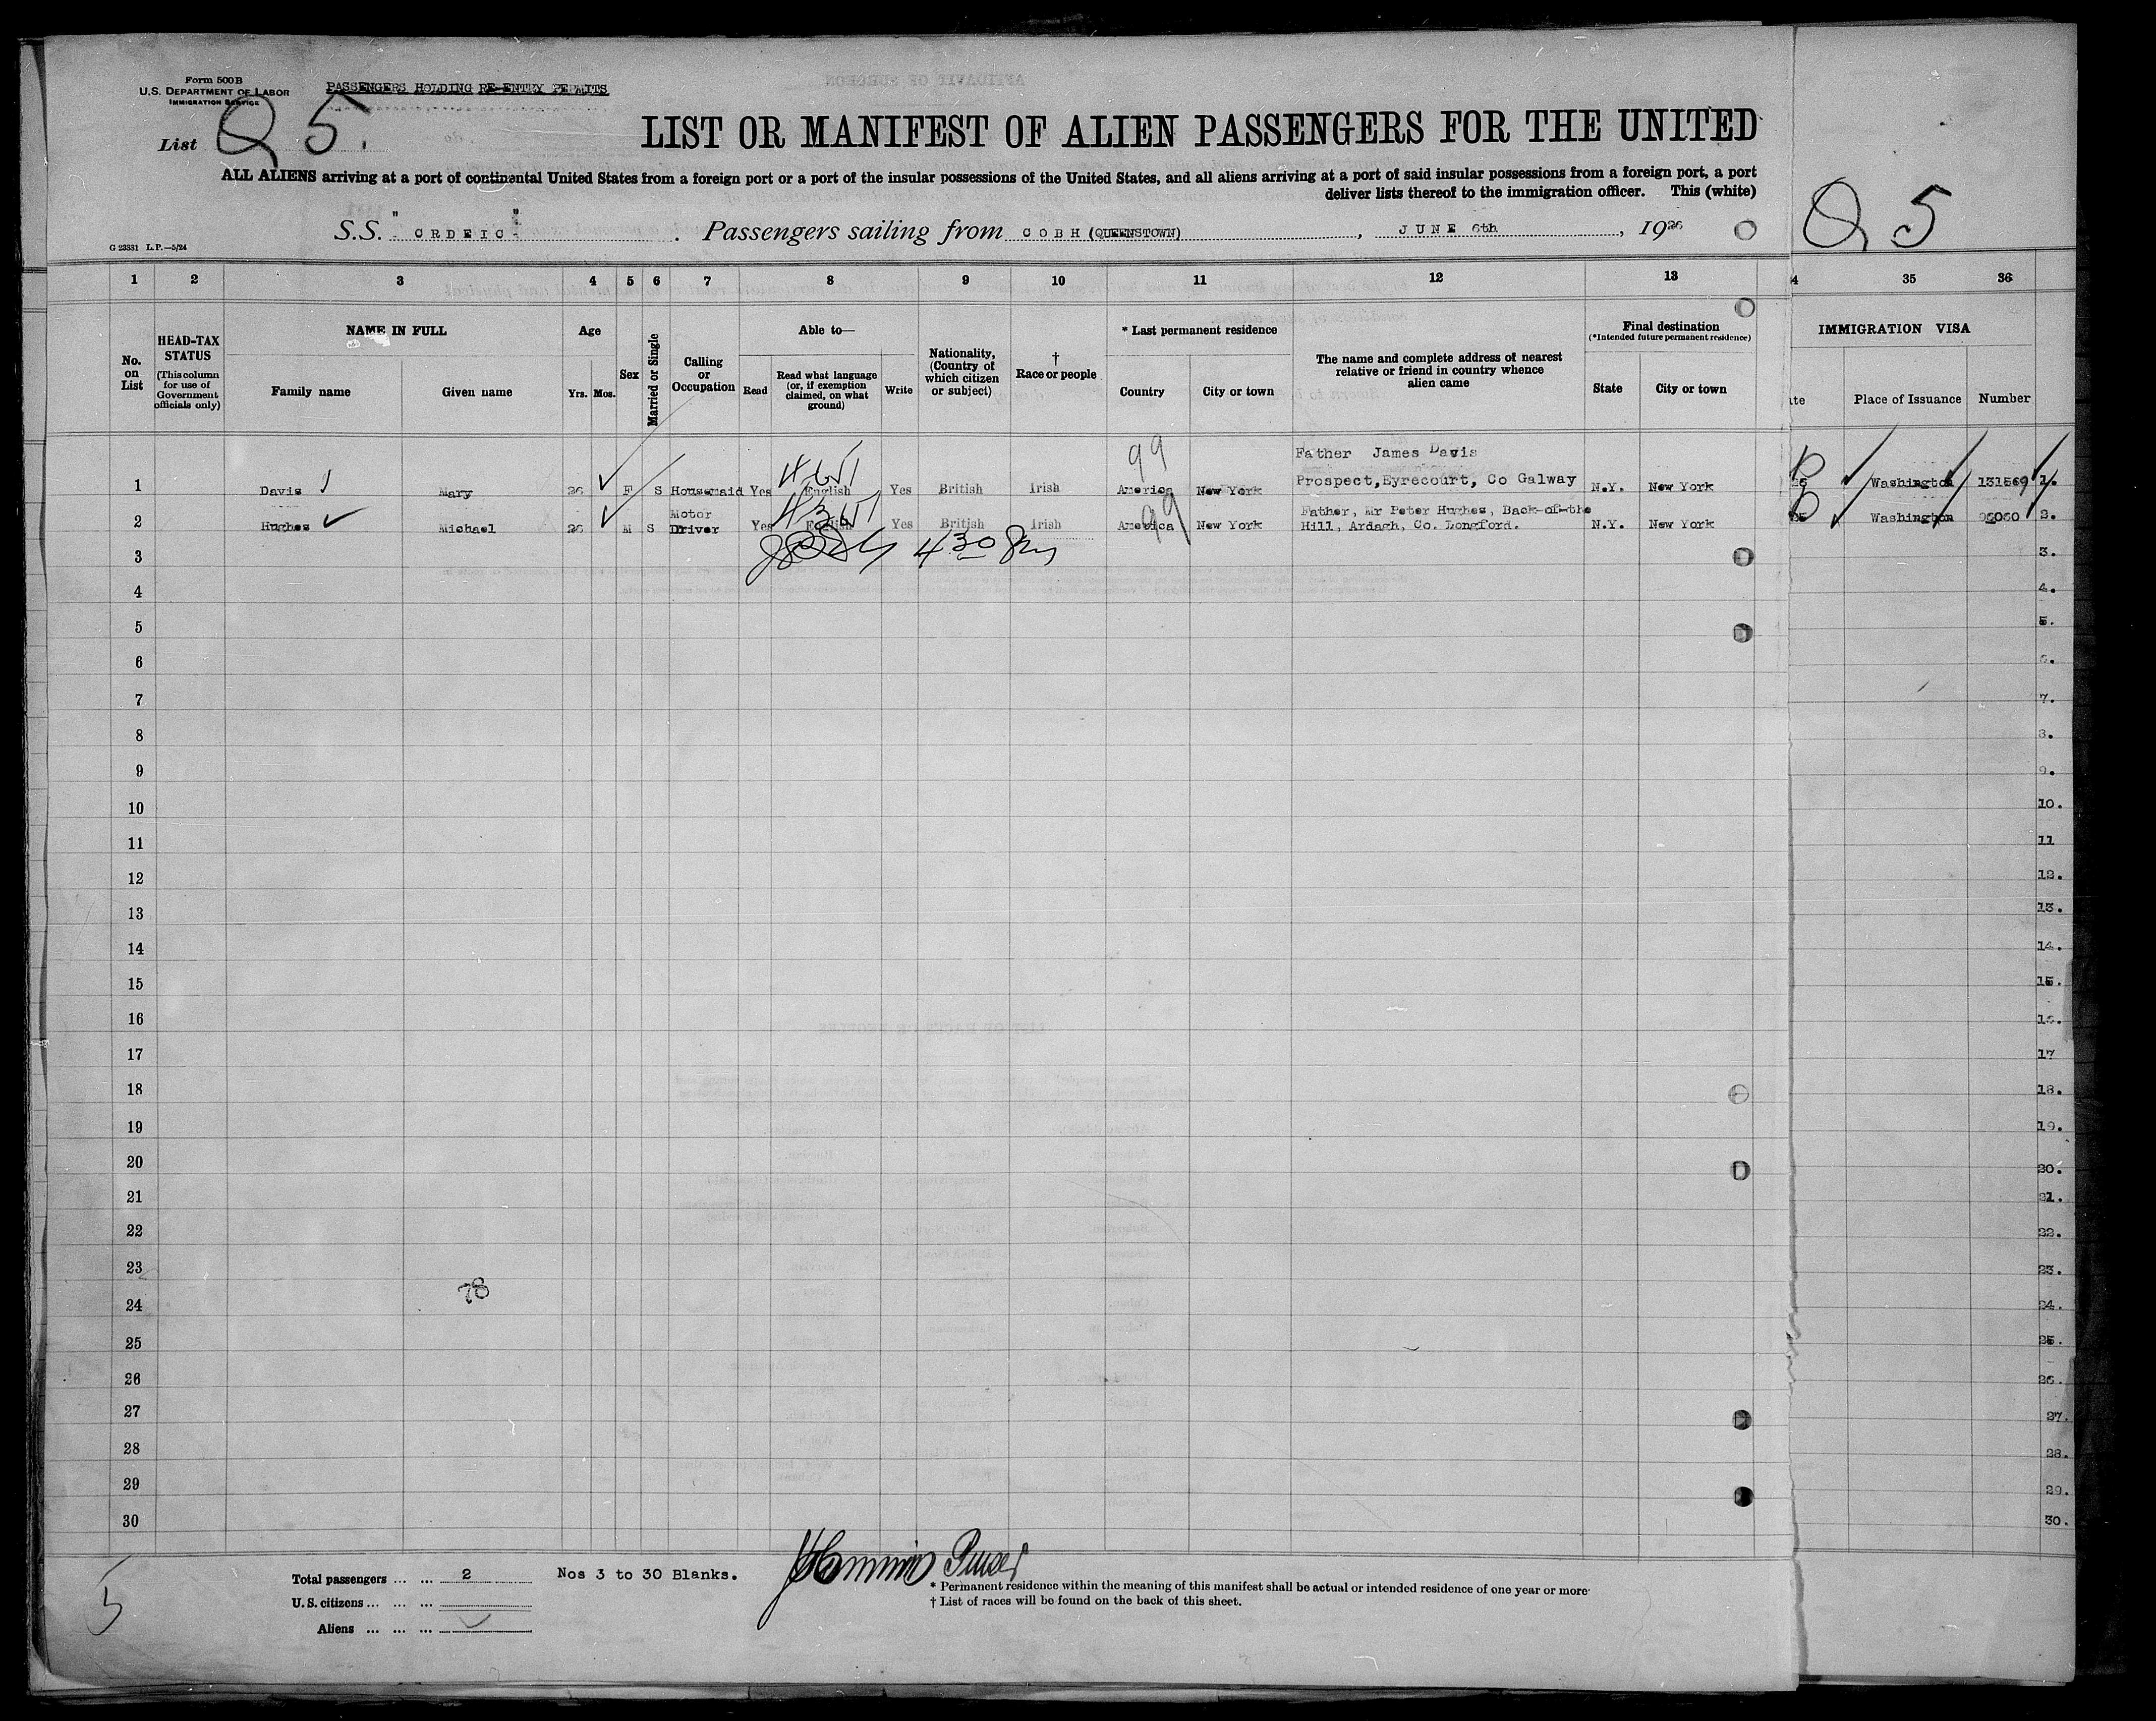 Form 500B
U.S. DEPARTMENT OF LABOR
IMMIGRATION SERVICE
PASSENGERS HOLDING RE-ENTRY PERMITS
List Q 5.
LIST OR MANIFEST OF ALIEN PASSENGERS FOR THE UNITED
ALL ALIENS arriving at a port of continental United States from a foreign port or a port of the insular possessions of the United States, and all aliens arriving at a port of said insular possessions from a foreign port, a port
deliver lists thereof to the immigration officer. This (white)
Q 5
S.S. "CRDEIC" . Passengers sailing from COBH (QUEENSTOWN) , JUNE 6th , 1926
G 23331 L.P.—5/24
1 2 3 4 5 6 7 8 9 10 11 12 13 4 35 36
No. on List
HEAD-TAX STATUS
(This column for use of Government officials only)
NAME IN FULL
Family name Given name
Age
Yrs. Mos.
Sex
Married or Single
Calling or Occupation
Able to—
Read
Read what language (or, if exemption claimed, on what ground)
Write
Nationality, (Country of which citizen or subject)
† Race or people
* Last permanent residence
Country City or town
The name and complete address of nearest relative or friend in country whence alien came
Final destination
(*Intended future permanent residence)
State City or town
IMMIGRATION VISA
te Place of Issuance Number
99
Father James Davis
1 Davis Mary 26 F S Housemaid Yes English Yes British Irish America New York Prospect,Eyrecourt, Co Galway N.Y. New York Washington 131569 1.
Motor Father, Mr Peter Hughes, Back-of-the
2 Hughes Michael 26 M S Driver Yes English Yes British Irish America New York Hill, Ardagh, Co. Longford. N.Y. New York Washington 96060 2.
99
3 430 3.
4 4.
5 5.
6 6.
7 7.
8 8.
9 9.
10 10.
11 11
12 12.
13 13.
14 14.
15 15.
16 16.
17 17
18 18.
19 19.
20 20.
21 21.
22 22.
23 23.
78
24 24.
25 25.
26 26.
27 27.
28 28.
29 29.
30 30.
5
Total passengers ... ... 2 Nos 3 to 30 Blanks.
U.S. citizens ... ... ...
Aliens ... ... ...
* Permanent residence within the meaning of this manifest shall be actual or intended residence of one year or more
† List of races will be found on the back of this sheet.